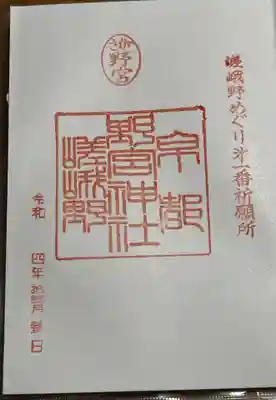 嵯峨野めぐり第一番祈願所
野宮
京都
野宮神社
嵯峨野
令和 四年 月 日